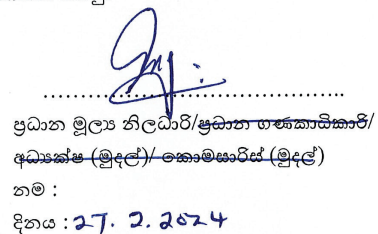 ප්‍රධාන මූල්‍ය නිලධාරි/ප්‍රධාන ගණකාධිකාරි/
අධ්‍යක්ෂ (මුදල්)/ කොමසාරිස් (මුදල්)
නම :
දිනය : 27. 2. 2024